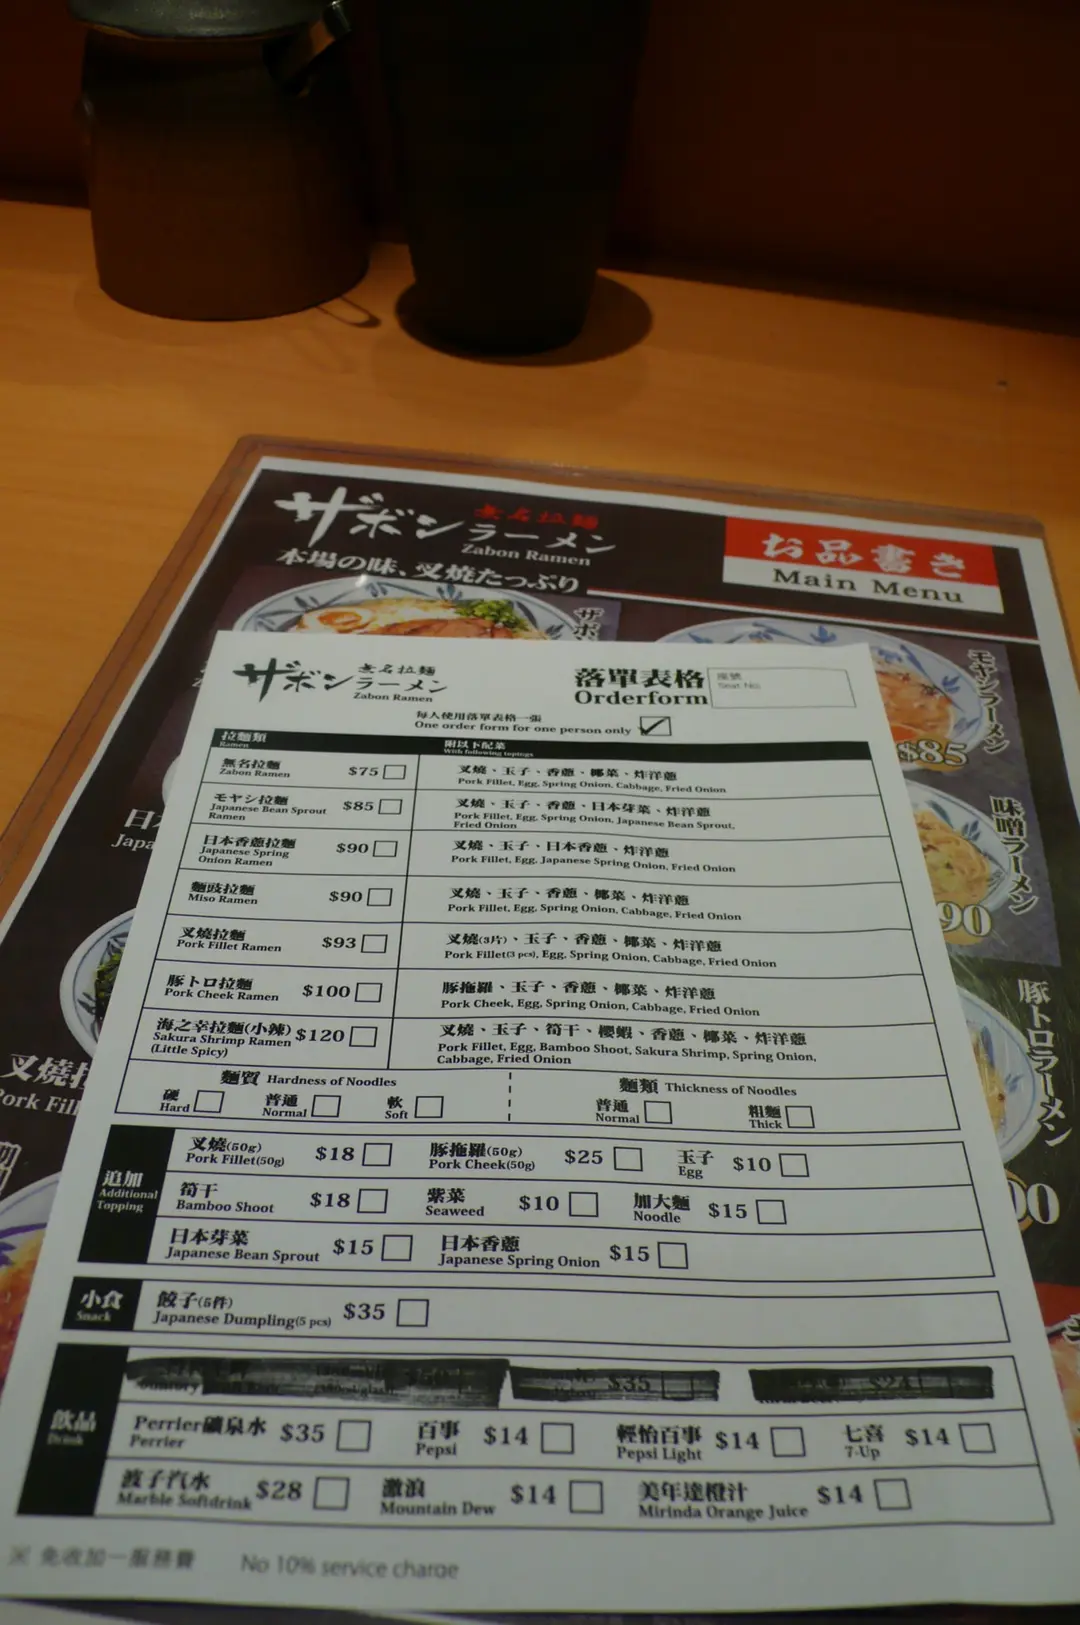 ザボンラーメン 無名拉麺
Zabon Ramen
本場の味、叉焼たっぷり
お品書き
Main Menu
モヤシラーメン
$85
味噌ラーメン
90
豚トロラーメン
00
日本
Japa
叉焼拉
Pork Fill
ザボンラーメン 無名拉麵
Zabon Ramen
落單表格
Orderform
座號
Seat No.
每人使用落單表格一張
One order form for one person only
拉麵類
Ramen
附以下配菜
With following topings
無名拉麵
Zabon Ramen
$75
叉燒、玉子、香蔥、椰菜、炸洋蔥
Pork Fillet, Egg, Spring Onion, Cabbage, Fried Onion
モヤシ拉麵
Japanese Bean Sprout
Ramen
$85
叉燒、玉子、香蔥、日本芽菜、炸洋蔥
Pork Fillet, Egg, Spring Onion, Japanese Bean Sprout,
Fried Onion
日本香蔥拉麵
Japanese Spring
Onion Ramen
$90
叉燒、玉子、日本香蔥、炸洋蔥
Pork Fillet, Egg, Japanese Spring Onion, Fried Onion
麵豉拉麵
Miso Ramen
$90
叉燒、玉子、香蔥、椰菜、炸洋蔥
Pork Fillet, Egg, Spring Onion, Cabbage, Fried Onion
叉燒拉麵
Pork Fillet Ramen
$93
叉燒(3片)、玉子、香蔥、椰菜、炸洋蔥
Pork Fillet(3 pcs), Egg, Spring Onion, Cabbage, Fried Onion
豚トロ拉麵
Pork Cheek Ramen
$100
豚拖羅、玉子、香蔥、椰菜、炸洋蔥
Pork Cheek, Egg, Spring Onion, Cabbage, Fried Onion
海之幸拉麵(小辣)
Sakura Shrimp Ramen
(Little Spicy)
$120
叉燒、玉子、筍干、櫻蝦、香蔥、椰菜、炸洋蔥
Pork Fillet, Egg, Bamboo Shoot, Sakura Shrimp, Spring Onion,
Cabbage, Fried Onion
麵質 Hardness of Noodles
硬 普通 軟
Hard Normal Soft
麵類 Thickness of Noodles
普通 粗麵
Normal Thick
追加
Additional
Topping
叉燒(50g) $18 豚拖羅(50g) $25 玉子 $10
Pork Fillet(50g) Pork Cheek(50g) Egg
筍干 $18 紫菜 $10 加大麵 $15
Bamboo Shoot Seaweed Noodle
日本芽菜 $15 日本香蔥 $15
Japanese Bean Sprout Japanese Spring Onion
小食
Snack
餃子(5件) $35
Japanese Dumpling(5 pcs)
飲品
Drink
$35
Perrier礦泉水 $35 百事 $14 輕怡百事 $14 七喜 $14
Perrier Pepsi Pepsi Light 7-Up
波子汽水 $28 激浪 $14 美年達橙汁 $14
Marble Softdrink Mountain Dew Mirinda Orange Juice
※ 免收加一服務費 No 10% service charge